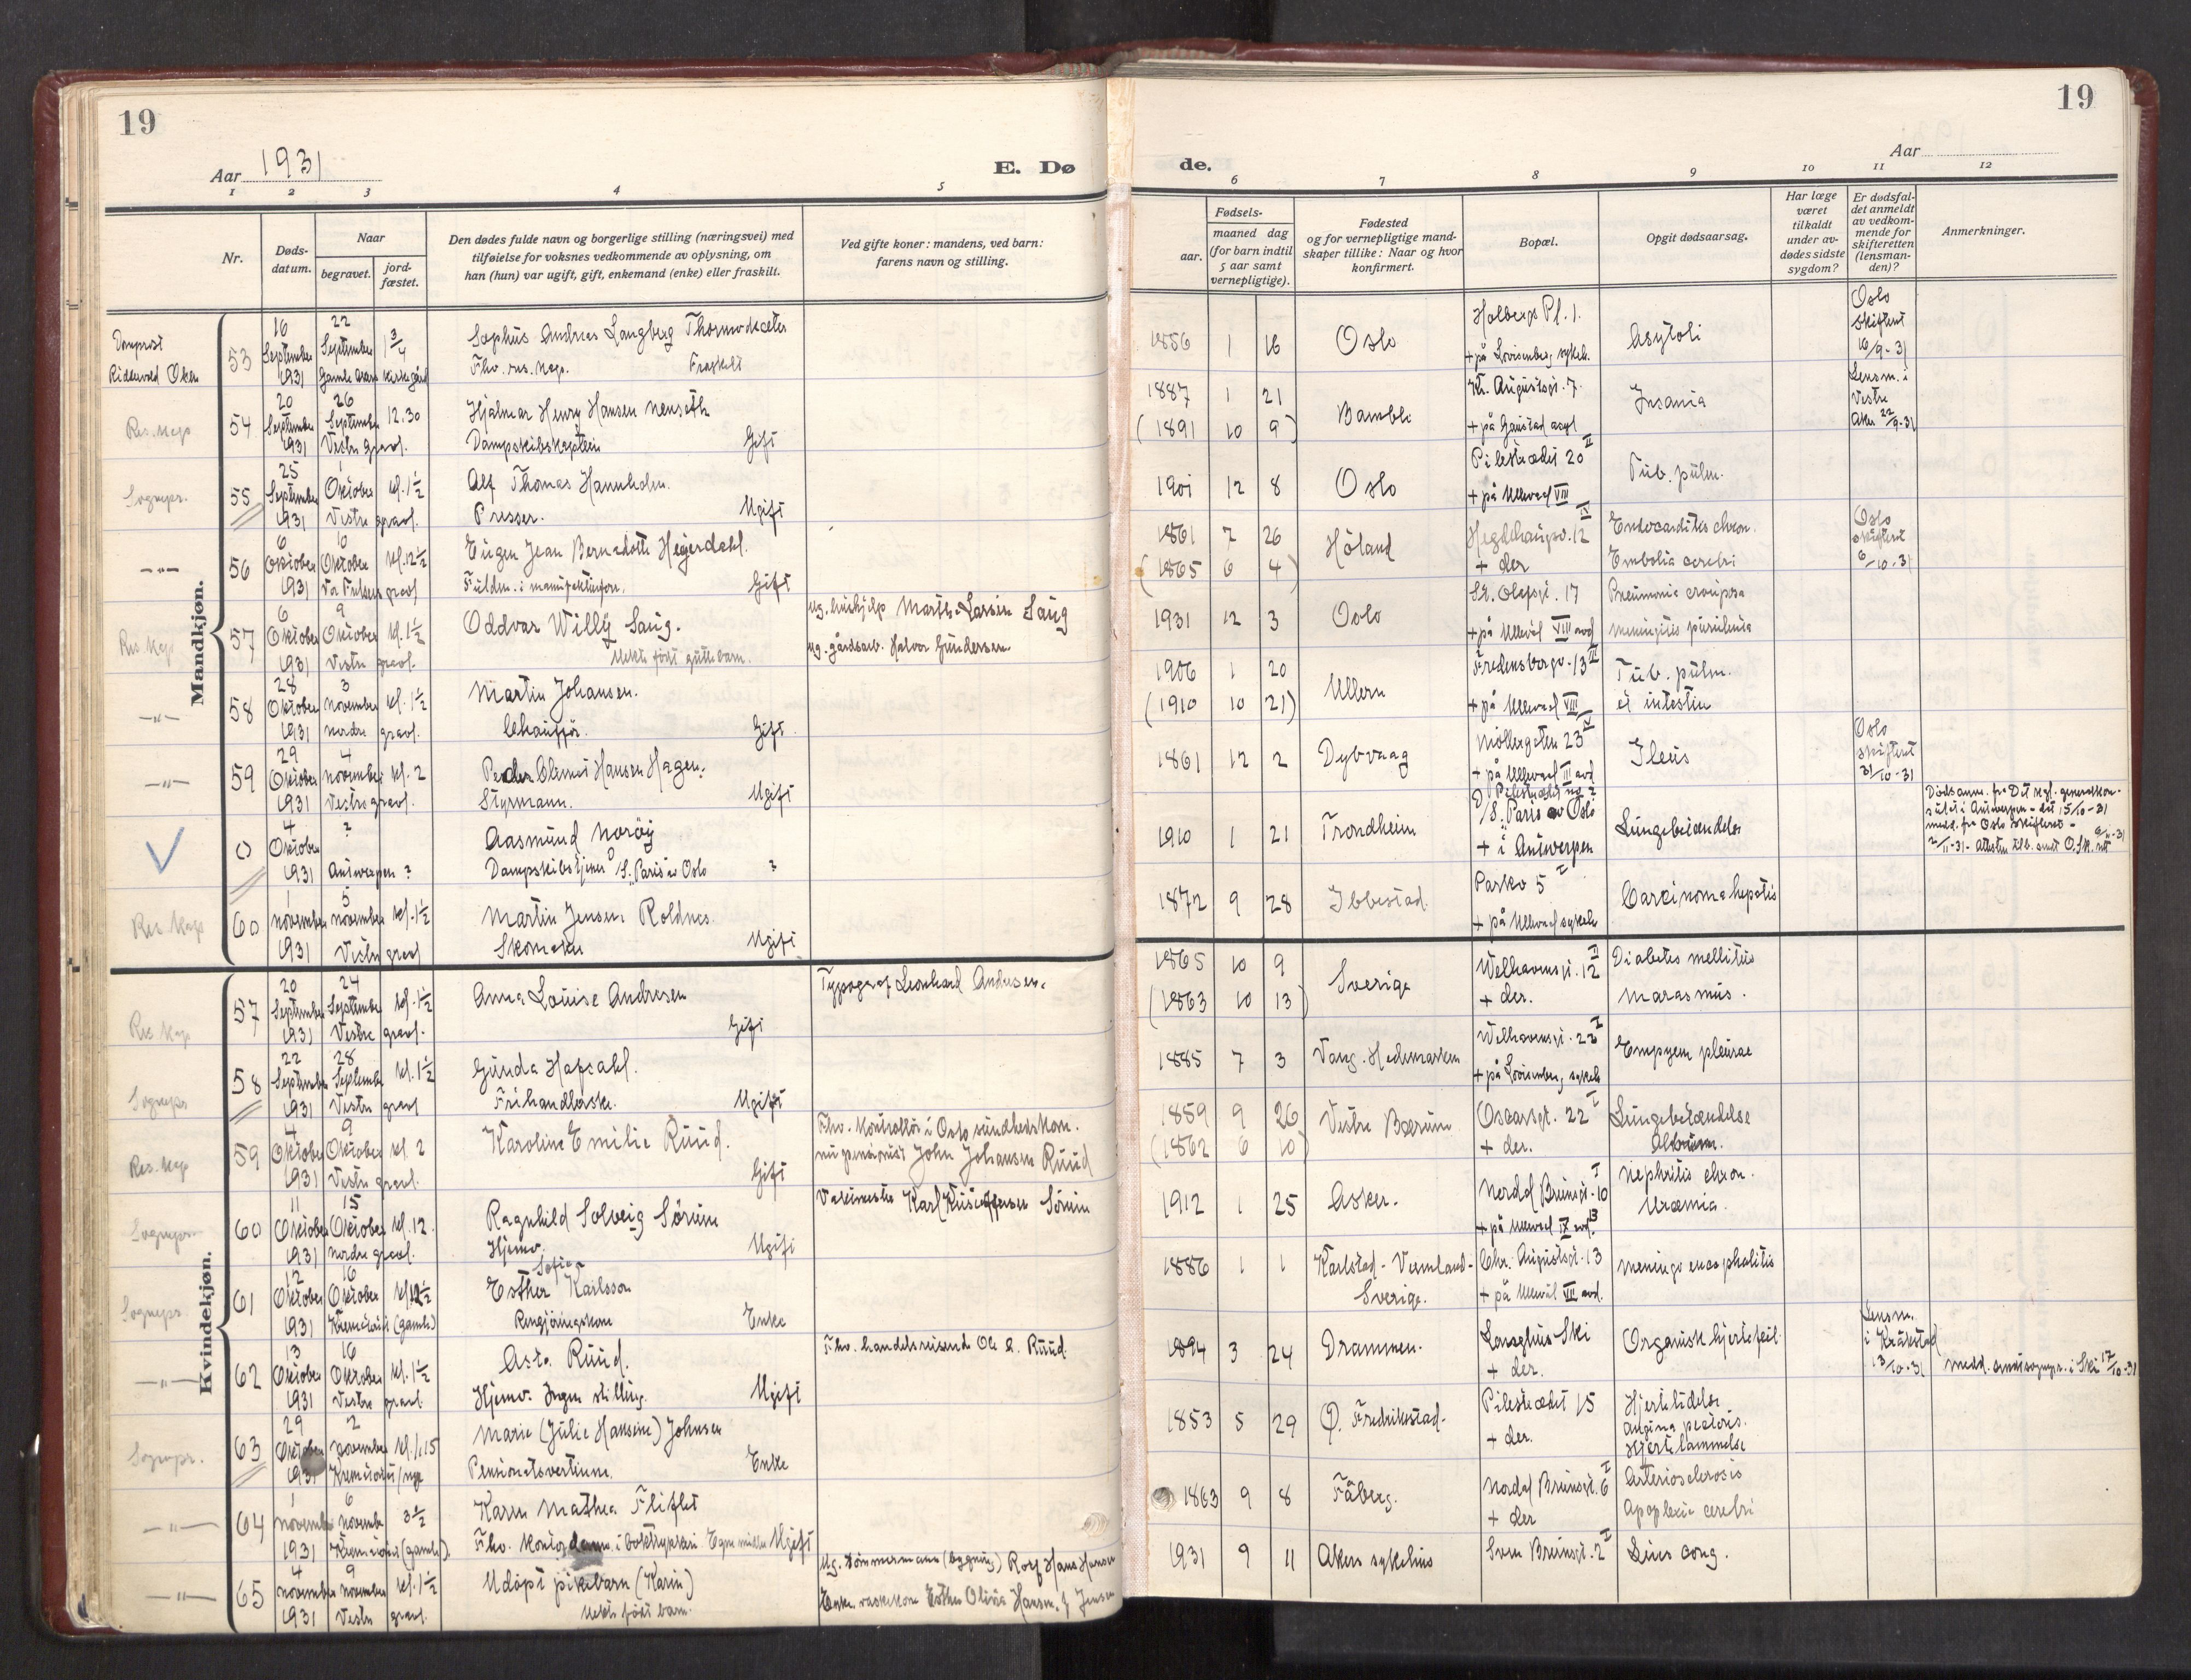 19
Aar 1931
E. Dø
1 2 3 4 5
Nr.
Døds-
datum.
Naar
begravet.
jord-
fæstet.
Den dødes fulde navn og borgerlige stilling (næringsvei) med
tilføielse for voksnes vedkommende av oplysning, om
han (hun) var ugift, gift, enkemand (enke) eller fraskilt.
Ved gifte koner: mandens, ved barn:
farens navn og stilling.
Mandkjøn.
Domprost
53 16 September 1931 22 September
Sophus Andreas Langberg
Fraskilt
Res. kap
54 20 September 1931 26 September 12.30 Vestre gravl.
Hjalmar Henry Hansen Menseth
Dampskibskaptein Gift
Sognepr.
55 25 September 1931 1 Oktober kl. 1½ Vestre gravl.
Alf Thomas Hannholm.
Presser. Ugift
—"—
56 6 Oktober 1931 10 Oktober kl. 12½ Vor Frelsers gravl
Eugen Jean Bernadotte Hejerdahl.
Gift
Res. Kap
57 6 Oktober 1931 9 Oktober kl. 1½ Vestre gravl.
Oddvar Willy Saug.
Uekte født guttebarn.
ug. hushjelp Marthe Larsen Saug
ug. gårdsarb. Halvor Gundersen
—"—
58 28 Oktober 1931 3 november kl. 1½ nordre gravl.
Martin Johansen.
Chauffør. Gift
—"—
59 29 Oktober 1931 4 november kl. 2 Vestre gravl.
Peder Olemus Hansen Hagen.
Styrmann. Ugift
0 4 Oktober 1931 ? Antwerpen ?
Aasmund Norøy
D/S. "Paris" av Oslo ?
Res. Kap
60 1 november 1931 5 november kl. 1½ Vestre gravl
Martin Jensen Roldnes
Skomaker Ugift
Kvindekjøn.
Res. Kap
57 20 September 1931 24 September kl. 1½ Vestre gravl.
Anna Louise Andresen
Gift
Typograf Leonhard Andresen.
Sognepr
58 22 September 1931 28 September kl. 1½ Vestre gravl
Gunda Hafsahl.
Frihandlerske. Ugift
Res. Kap
59 4 Oktober 1931 9 Oktober kl. 2 Vestre gravl.
Karoline Emilie Ruud.
Gift
Fhv. kontrollør i Oslo sundhetskom.
nu pensionist John Johansen Ruud
Sognepr.
60 11 Oktober 1931 15 Oktober kl. 12. nordre gravl.
Ragnhild Solveig Sørum
Hjemv. Ugift
Vaktmester Karl Kristoffersen Sørum
Sognepr.
61 12 Oktober 1931 16 Oktober kl. 12½ Krematoriet (gamle)
Sofie
Esther Karlsson
Rengjøringskone Enke
—"—
62 13 Oktober 1931 16 Oktober kl. 1½ Vestre gravl.
Asta Ruud.
Hjemv. Ingen stilling. Ugift
Fhv. handelsreisende Ole A. Ruud.
Sognepr.
63 29 Oktober 1931 2 november kl. 1.15 Krematoriet/nye
Marie (Julie Hansine) Johnsen
Pensionatsvertinne. Enke
—"—
64 1 november 1931 6 november 3½ Krematoriet (gamle).
Karen Mathea Fliflet
Fhv. kontordame i boktrykkeri. Egne midler Ugift
—"—
65 4 november 1931 9 november kl. 1½ Vestre gravl.
Udøpt pikebarn (Karin)
Uekte født barn.
Ug. tømmermann (bygning) Rolf Hans Hansen
Enke, vaskekone Esther Olivia Hansen, f. Jensen
19
Aar
de.
6 7 8 9 10 11 12
Fødsels-
aar.
maaned dag
(for barn indtil
5 aar samt
vernepligtige).
Fødested
og for vernepligtige mand-
skaper tillike: Naar og hvor
konfirmert.
Bopæl.
Opgit dødsaarsag.
Har læge
været
tilkaldt
under av-
dødes sidste
sygdom?
Er dødsfal-
det anmeldt
av vedkom-
mende for
skifteretten
(lensman-
den)?
Anmerkninger.
1856 1 16 Oslo Holbergs Pl. 1. + på Lovisenberg sykeh. Asystoli Oslo skifteret 16/9-31
1887 1 21 Bamble Kr. Augustsgt. 7. + på Gaustad asyl Insania Lensm. i Vestre Aker 22/9-31
(1891 10 9)
1901 12 8 Oslo Pilestrædet 20 II + på Ullevaal VIII Tub. pulm.
1861 7 26 Høland Hegdehaugsv. 12 IV + der Endocarditis chron. Embolia cerebri Oslo skifteret 6/10-31
(1865 6 4)
1931 12 3 Oslo St. Olafsgt. 17 + på Ullevål VIII avd Pneumonia crouposa meningitis purulenta
1906 1 20 Ullern Fredensborgv. 13 III + på Ullevaal VIII Tub. pulm. et intestin
(1910 10 21)
1861 12 2 Dybvaag Møllergaten 23 IV + på Ullevaal III avd Ileus Oslo skifteret 31/10-31
1910 1 21 Trondheim Pilestrædet no 2 D/S. "Paris" av Oslo + i Antwerpen Lungebetændelse
Dødsanm. fra Det kgl. generalkon-
sulat i Antwerpen - dat 15/10-31
medd. fra Oslo skifteret -
2/11-31 - Attesten tilb. sendt O. Sk. ret 9/11-31
1872 9 28 Ibbestad. Parkv 5 I + på Ullevaal sykeh Carcinoma hepatis
1865 10 9 Sverige Welhavensgt. 12 II + der. Diabetes mellitus Marasmus.
(1863 10 13)
1885 7 3 Vang. Hedemarken Welhavensgt. 22 I + på Lovisenberg sykeh Empyem pleurae
1859 9 26 Vestre Bærum Oscarsgt. 22 I + der. Lungebetændelse
(1862 6 10)
1912 1 25 Asker. Nordal Brunsgt. 10 I + på Ullevaal IX avd. Nephritis chron. Uræmia.
1886 1 1 Karlstad - Vermland - Sverige. Chr. Augustsgt. 13 + på Ullevål VII avd. meningo encephalitis
1894 3 24 Drammen. Langhus Ski + der. Organisk hjertefeil. Lensm. i Kråkstad 13/10-31 medd. sendt sognepr. i Ski 17/10-31
1853 5 29 Ø. Fredrikstad. Pilestrædet 15 + der. Hjertelidelse Angina pectoris. Hjertelammelse
1863 9 8 Fåberg. Nordal Brunsgt. 6 I + der Arteriosclerosis Apoplexia cerebri
1931 9 11 Akers sykehus Sven Brunsgt. 2 I Lues cong.